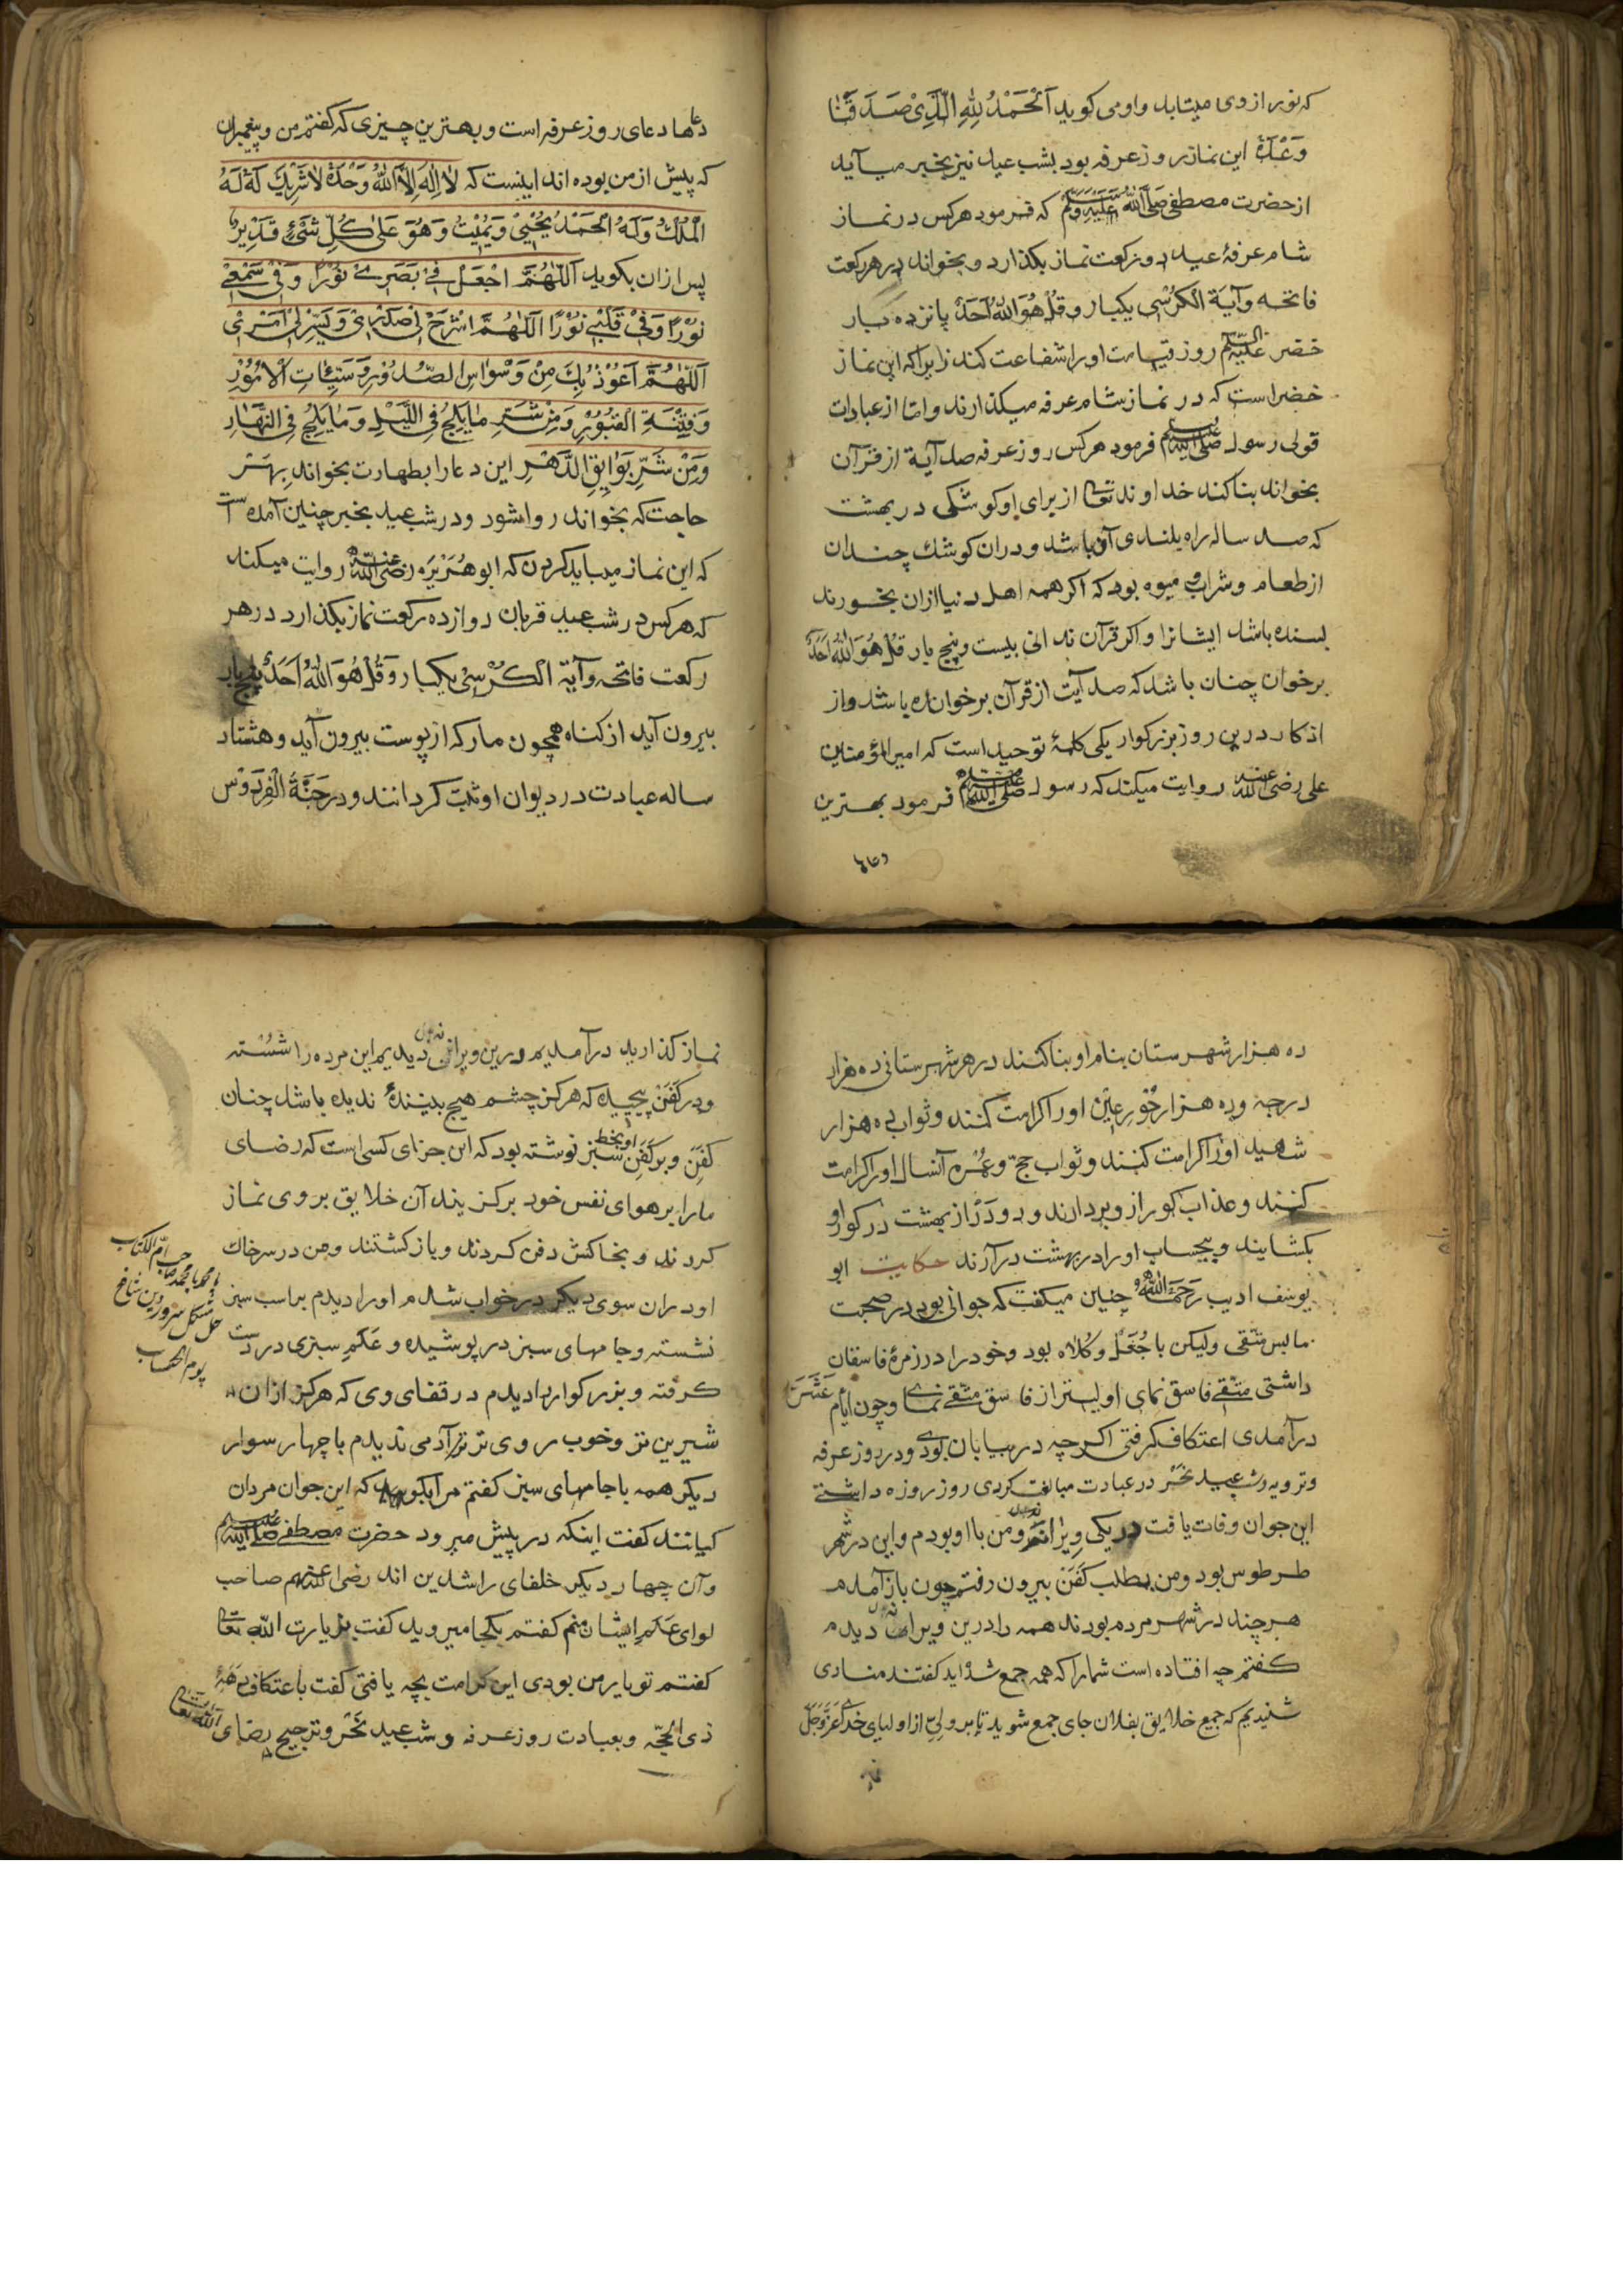 که نور از وی میتابد و او می کوید اَلْحَمْدُ لِلّٰهِ الَّذِیْ صَدَقَنَا
وَعْدَهٗ این نماز روز عرفه بود بشب عید نیز بخبر میآید
از حضرت مصطفی صَلَّی اللّٰهُ عَلَیْهِ وَسَلَّمَ که فرمود هرکس در نماز
شام عرفۀ عید دو رکعت نماز بکذارد و بخواند در هر رکعت
فاتحه وآیَة الْکُرْسِی یکبار و قُلْ هُوَ اللّٰهُ اَحَدْ پانزده بار
خضر علیه السّلم روز قیامت او را شفاعت کند زیرا که این نماز
خضر است که در نماز شام عرفه میکذارند و اما از عبادات
قولی رسول صلی الله علیه وسلم فرمود هرکس روز عرفه صد آیة از قرآن
بخواند بنا کند خداوند تعا از برای او کوشکی در بهشت
که صد ساله راه بلندی آن باشد و در ان کوشک چندان
از طعام و شراب و میوه بود که اکر همه اهل دنیا ازان بخورند
بسنده باشد ایشانرا و اکر قرآن ندانی بیست و پنج بار قُلْ هُوَ اللّٰهُ اَحَدٌ
برخوان چنان باشد که صد آیت از قرآن برخوانده باشد و از
اذکار درین روز بزرکوار یکی کلمۀ توحید است که امیر المؤمنین
علی رضی الله عنه روایت میکند که رسول صلی الله علیه وسلم فرمود بهترین
دعاها
دعاها دعای روز عرفه است و بهترین چیزی که کفتم من و پیغمبران
که پیش از من بوده اند اینست که لَا اِلٰهَ اِلَّا اللّٰهُ وَحْدَهٗ لَا شَرِیْكَ لَهٗ لَهُ
الْمُلْكُ وَلَهُ الْحَمْدُ یُحْیِیْ وَیُمِیْتُ وَهُوَ عَلٰی کُلِّ شَیْءٍ قَدِیْرٌ
پس ازان بکوید اَللّٰهُمَّ اجْعَلْ فِیْ بَصَرِیْ نُوْرًا وَفِیْ سَمْعِیْ
نُوْرًا وَفِیْ قَلْبِیْ نُوْرًا اَللّٰهُمَّ اشْرَحْ لِیْ صَدْرِیْ وَیَسِّرْ لِیْ اَمْرِیْ
اَللّٰهُمَّ اَعُوْذُ بِكَ مِنْ وَسْوَاسِ الصُّدُوْرِ وَسَیِّئَاتِ الْاُمُوْرِ
وَفِتْنَةِ الْقُبُوْرِ وَمِنْ شَرِّ مَا یَلِجُ فِی اللَّیْلِ وَمَا یَلِجُ فِی النَّهَارِ
وَمِنْ شَرِّ بَوَایِقِ الدَّهْرِ این دعا را بطهارت بخواند بهر
حاجت که بخواند روا شود و در شب عید بخبر چنین آمده است
که این نماز میباید کردن که ابو هُرَیْرَه رضی الله عنه روایت میکند
که هرکس در شب عید قربان دوازده رکعت نماز بکذارد در هر
رکعت فاتحه و آیة الکُرْسِیْ یکبار و قُلْ هُوَ اللّٰهُ اَحَدٌ پنج بار
بیرون آید از کناه همچون مار که از پوست بیرون آید و هشتاد
ساله عبادت در دیوان او ثبت کردانند و در جَنَّةُ الْفِرْدَوْس
ده هزار شهرستان بنام او بنا کنند در هر شهرستانی ده هزار
درجه و ده هزار حُوْرِ عِیْن او را کرامت کنند و ثواب ده هزار
شهید او را کرامت کنند و ثواب حج و عُمْره آنسال او را کرامت
کنند و عذاب کور از و بردارند و دو دَرْ از بهشت در کور او
بکشایند و بیحساب او را در بهشت درآرند حکایت ابو
یوسُف ادیب رَحِمَهُ اللّٰهُ چنین میکفت که جوانی بود در صحبت
ما بس متقی ولیکن با جُغَلْ و کُلاه بود و خود را در زمرۀ فاسقان
داشتی متّقیْ فاسق نمای اولیتر از فاسق متّقیْ نمای و چون ایّام عَشَر
درآمدی اعتکاف کرفتی اکرچه در بیابان بودی و در روز عرفه
و ترویه و شب عید نَحْر در عبادت مبالغت کردی روز روزه داشتی
این جوان وفات یافت در یکی ویرانه و من با او بودم و این در شهر
طرطوس بود و من بطلب کَفَن بیرون رفتم چون باز آمدم
هر چند در شهر مردم بودند همه را درین ویرانه دیدم
کفتم چه افتاده است شما را که همه جمع شده اید کفتند منادی
شنیدیم که جمیع خلایق بفلان جای جمع شوید تا بر ولیِّ از اولیای خدای عَزَّ وَجَلَّ
نماز
نماز کذارید درآمدیم درین ویرانه دیدیم این مرده را شُسْته
و در کَفَنْ پیچیده که هرکز چشم هیچ بینندۀ ندیده باشد چنان
کَفَن و بر کَفَنِ او بخط سبز نوشته بود که این جزای کسی است که رضای
ما را بر هوای نفس خود برکزیند آن خلایق بر وی نماز
کردند و بخاکش دفن کردند و باز کشتند و من در سر خاك
او دران سوی دیکر در خواب شدم او را دیدم بر اسب سبز
نشسته و جامهای سبز در پوشیده و عَلَمِ سبزی در دست
کرفته و بزرکوار دیدم در قفای وی که هرکز ازان
شیرین تر و خوب روی تر آدمی ندیدم با چهار سوار
دیکر همه با جامهای سبز کفتم مرا بکویید که این جوان مردان
کیانند کفت اینکه در پیش میرود حضرت مصطفی صلی الله علیه وسلم
و آن چهار دیکر خلفای راشدین اند رضی الله عنهم صاحب
لوای عَلَمِ ایشان منم کفتم بکجا میروید کفت بزیارت اللّٰه تعا
کفتم تو یار من بودی این کرامت بچه یافتی کفت باعتکاف دَهَۀ
ذی الحجّه و بعبادت روز عرفه و شب عید نَحْر و ترجیح رضای اللّٰه تعالی
یا محمد یا محمد صاحب امّ الکتاب
حل مشکل سرور دین
یوم الحساب